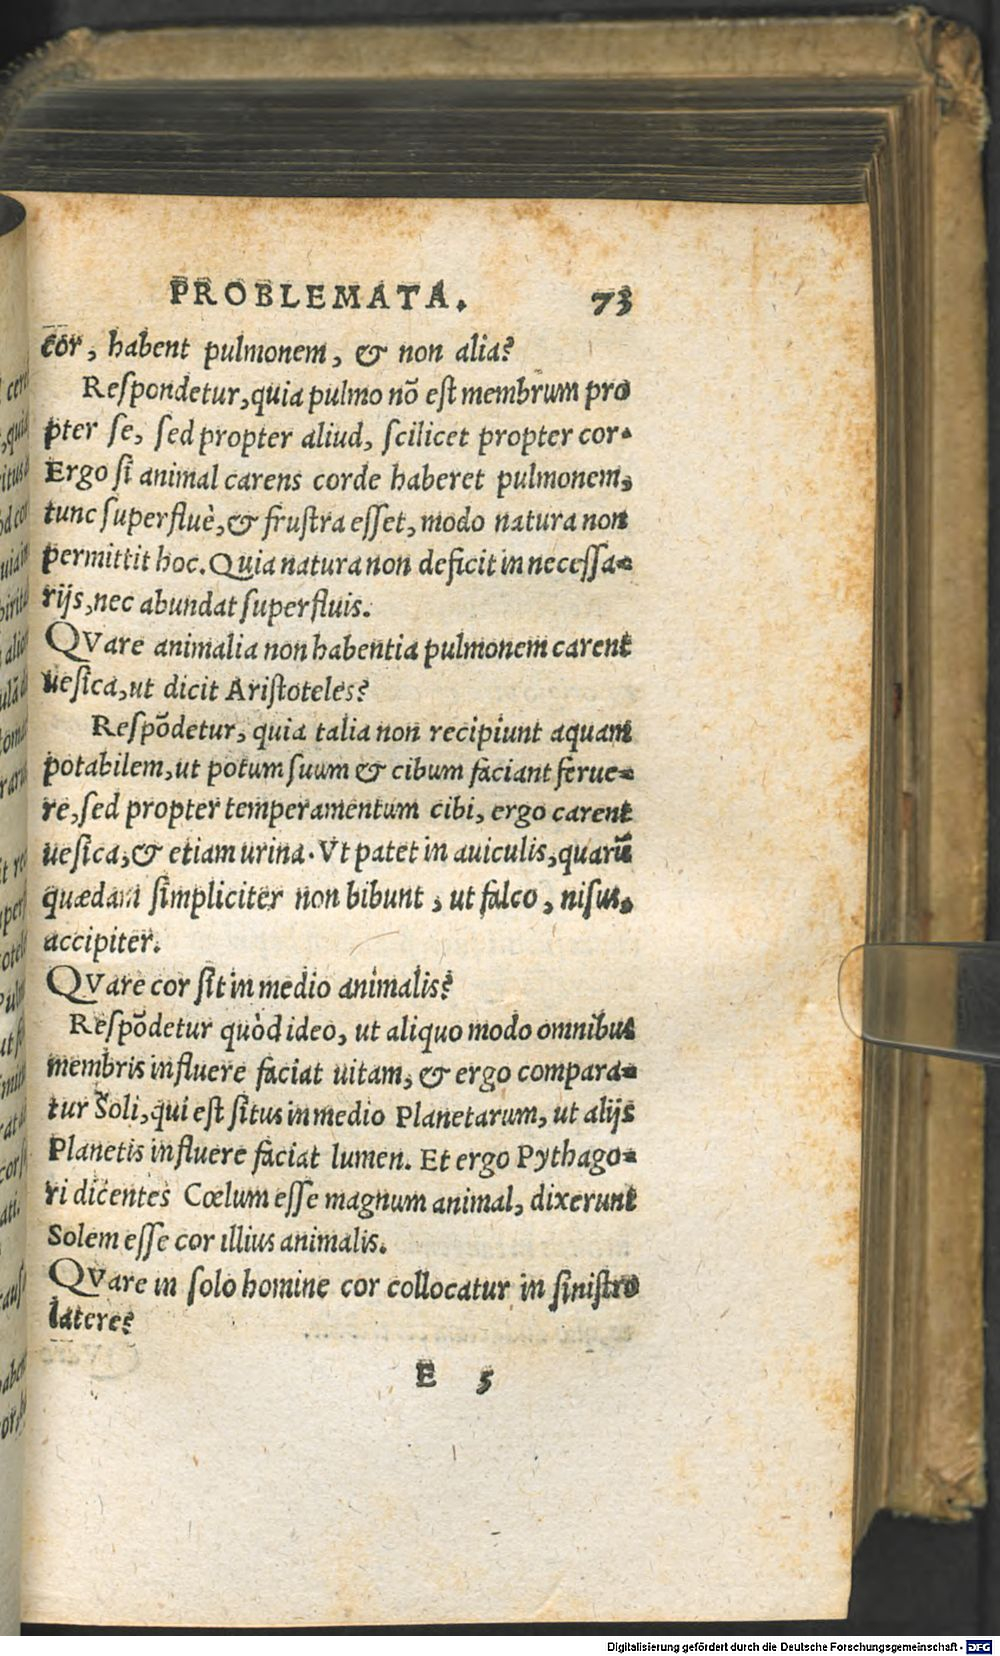 PROBLEMATA. 73
cor, habent pulmonem, & non alia?
Reſpondetur, quia pulmo nõ eſt membrum pro
pter ſe, ſed propter aliud, ſcilicet propter cor.
Ergo ſi animal carens corde haberet pulmonem,
tunc ſuperfluè, & fruſtra eſſet, modo natura non
permittit hoc. Quia natura non deficit in neceſſa-
rijs, nec abundat ſuperfluis.
QVare animalia non habentia pulmonem carent
ueſica, ut dicit Ariſtoteles?
Reſpõdetur, quia talia non recipiunt aquam
potabilem, ut potum ſuum & cibum faciant ferue-
re, ſed propter temperamentum cibi, ergo carent
ueſica, & etiam urina. Vt patet in auiculis, quarũ
quædam ſimpliciter non bibunt, ut falco, niſus,
accipiter.
QVare cor ſit in medio animalis?
Reſpõdetur quòd ideo, ut aliquo modo omnibus
membris influere faciat uitam, & ergo compara-
tur Soli, qui eſt ſitus in medio Planetarum, ut alijs
Planetis influere faciat lumen. Et ergo Pythago-
ri dicentes Cœlum eſſe magnum animal, dixerunt
Solem eſſe cor illius animalis.
QVare in ſolo homine cor collocatur in ſiniſtro
latere?
E 5
Digitalisierung gefördert durch die Deutsche Forschungsgemeinschaft - DFG